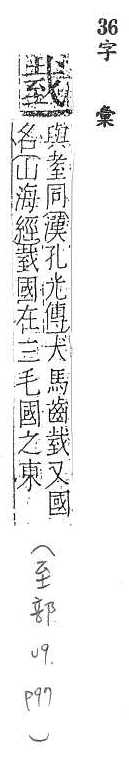 36
字彙
臷
與耋同漢孔光傳犬馬齒臷又國
名山海經臷國在三毛國之東
（至部 49. P97）